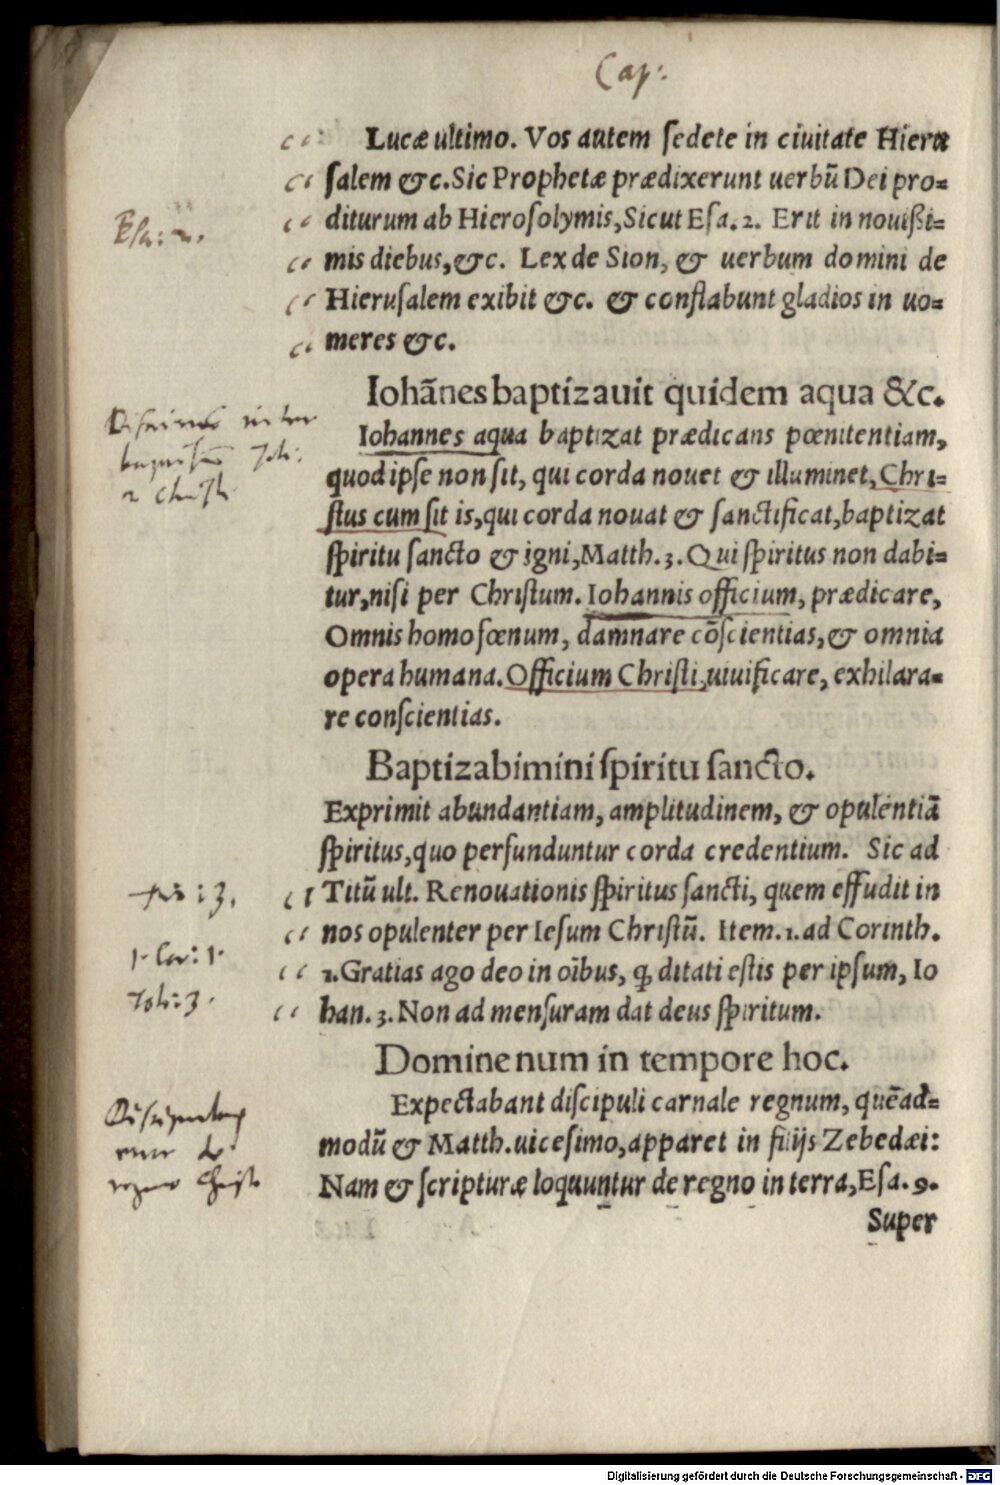 Cap:
Lucæ ultimo. Vos autem ſedete in ciuitate Hieru
ſalem &c. Sic Prophetæ prædixerunt uerbū Dei pro=
Esa: 2.
diturum ab Hieroſolymis, Sicut Eſa. 2. Erit in nouißi=
mis diebus, &c. Lex de Sion, & uerbum domini de
Hieruſalem exibit &c. & conflabunt gladios in uo=
meres &c.
Iohānes baptizauit quidem aqua &c.
Iohannes aqua baptizat prædicans pœnitentiam,
quod ipſe non ſit, qui corda nouet & illuminet, Chri=
ſtus cum ſit is, qui corda nouat & ſanctificat, baptizat
ſpiritu ſancto & igni, Matth. 3. Qui ſpiritus non dabi=
tur, niſi per Chriſtum. Iohannis officium, prædicare,
Omnis homo fœnum, damnare cōſcientias, & omnia
opera humana. Officium Chriſti, uiuificare, exhilara=
re conſcientias.
Baptizabimini ſpiritu ſancto.
Exprimit abundantiam, amplitudinem, & opulentiā
ſpiritus, quo perfunduntur corda credentium. Sic ad
Titū ult. Renouationis ſpiritus ſancti, quem effudit in
nos opulenter per Ieſum Chriſtū. Item. 1. ad Corinth.
1. Cor: 1.
1. Gratias ago deo in oībus, ꝙ ditati eſtis per ipſum, Io
Joh: 3.
han. 3. Non ad menſuram dat deus ſpiritum.
Domine num in tempore hoc.
Expectabant diſcipuli carnale regnum, quēad=
modū & Matth. uiceſimo, apparet in filijs Zebedæi:
Nam & ſcripturæ loquuntur de regno in terra, Eſa. 9.
Super
Digitalisierung gefördert durch die Deutsche Forschungsgemeinschaft - DFG